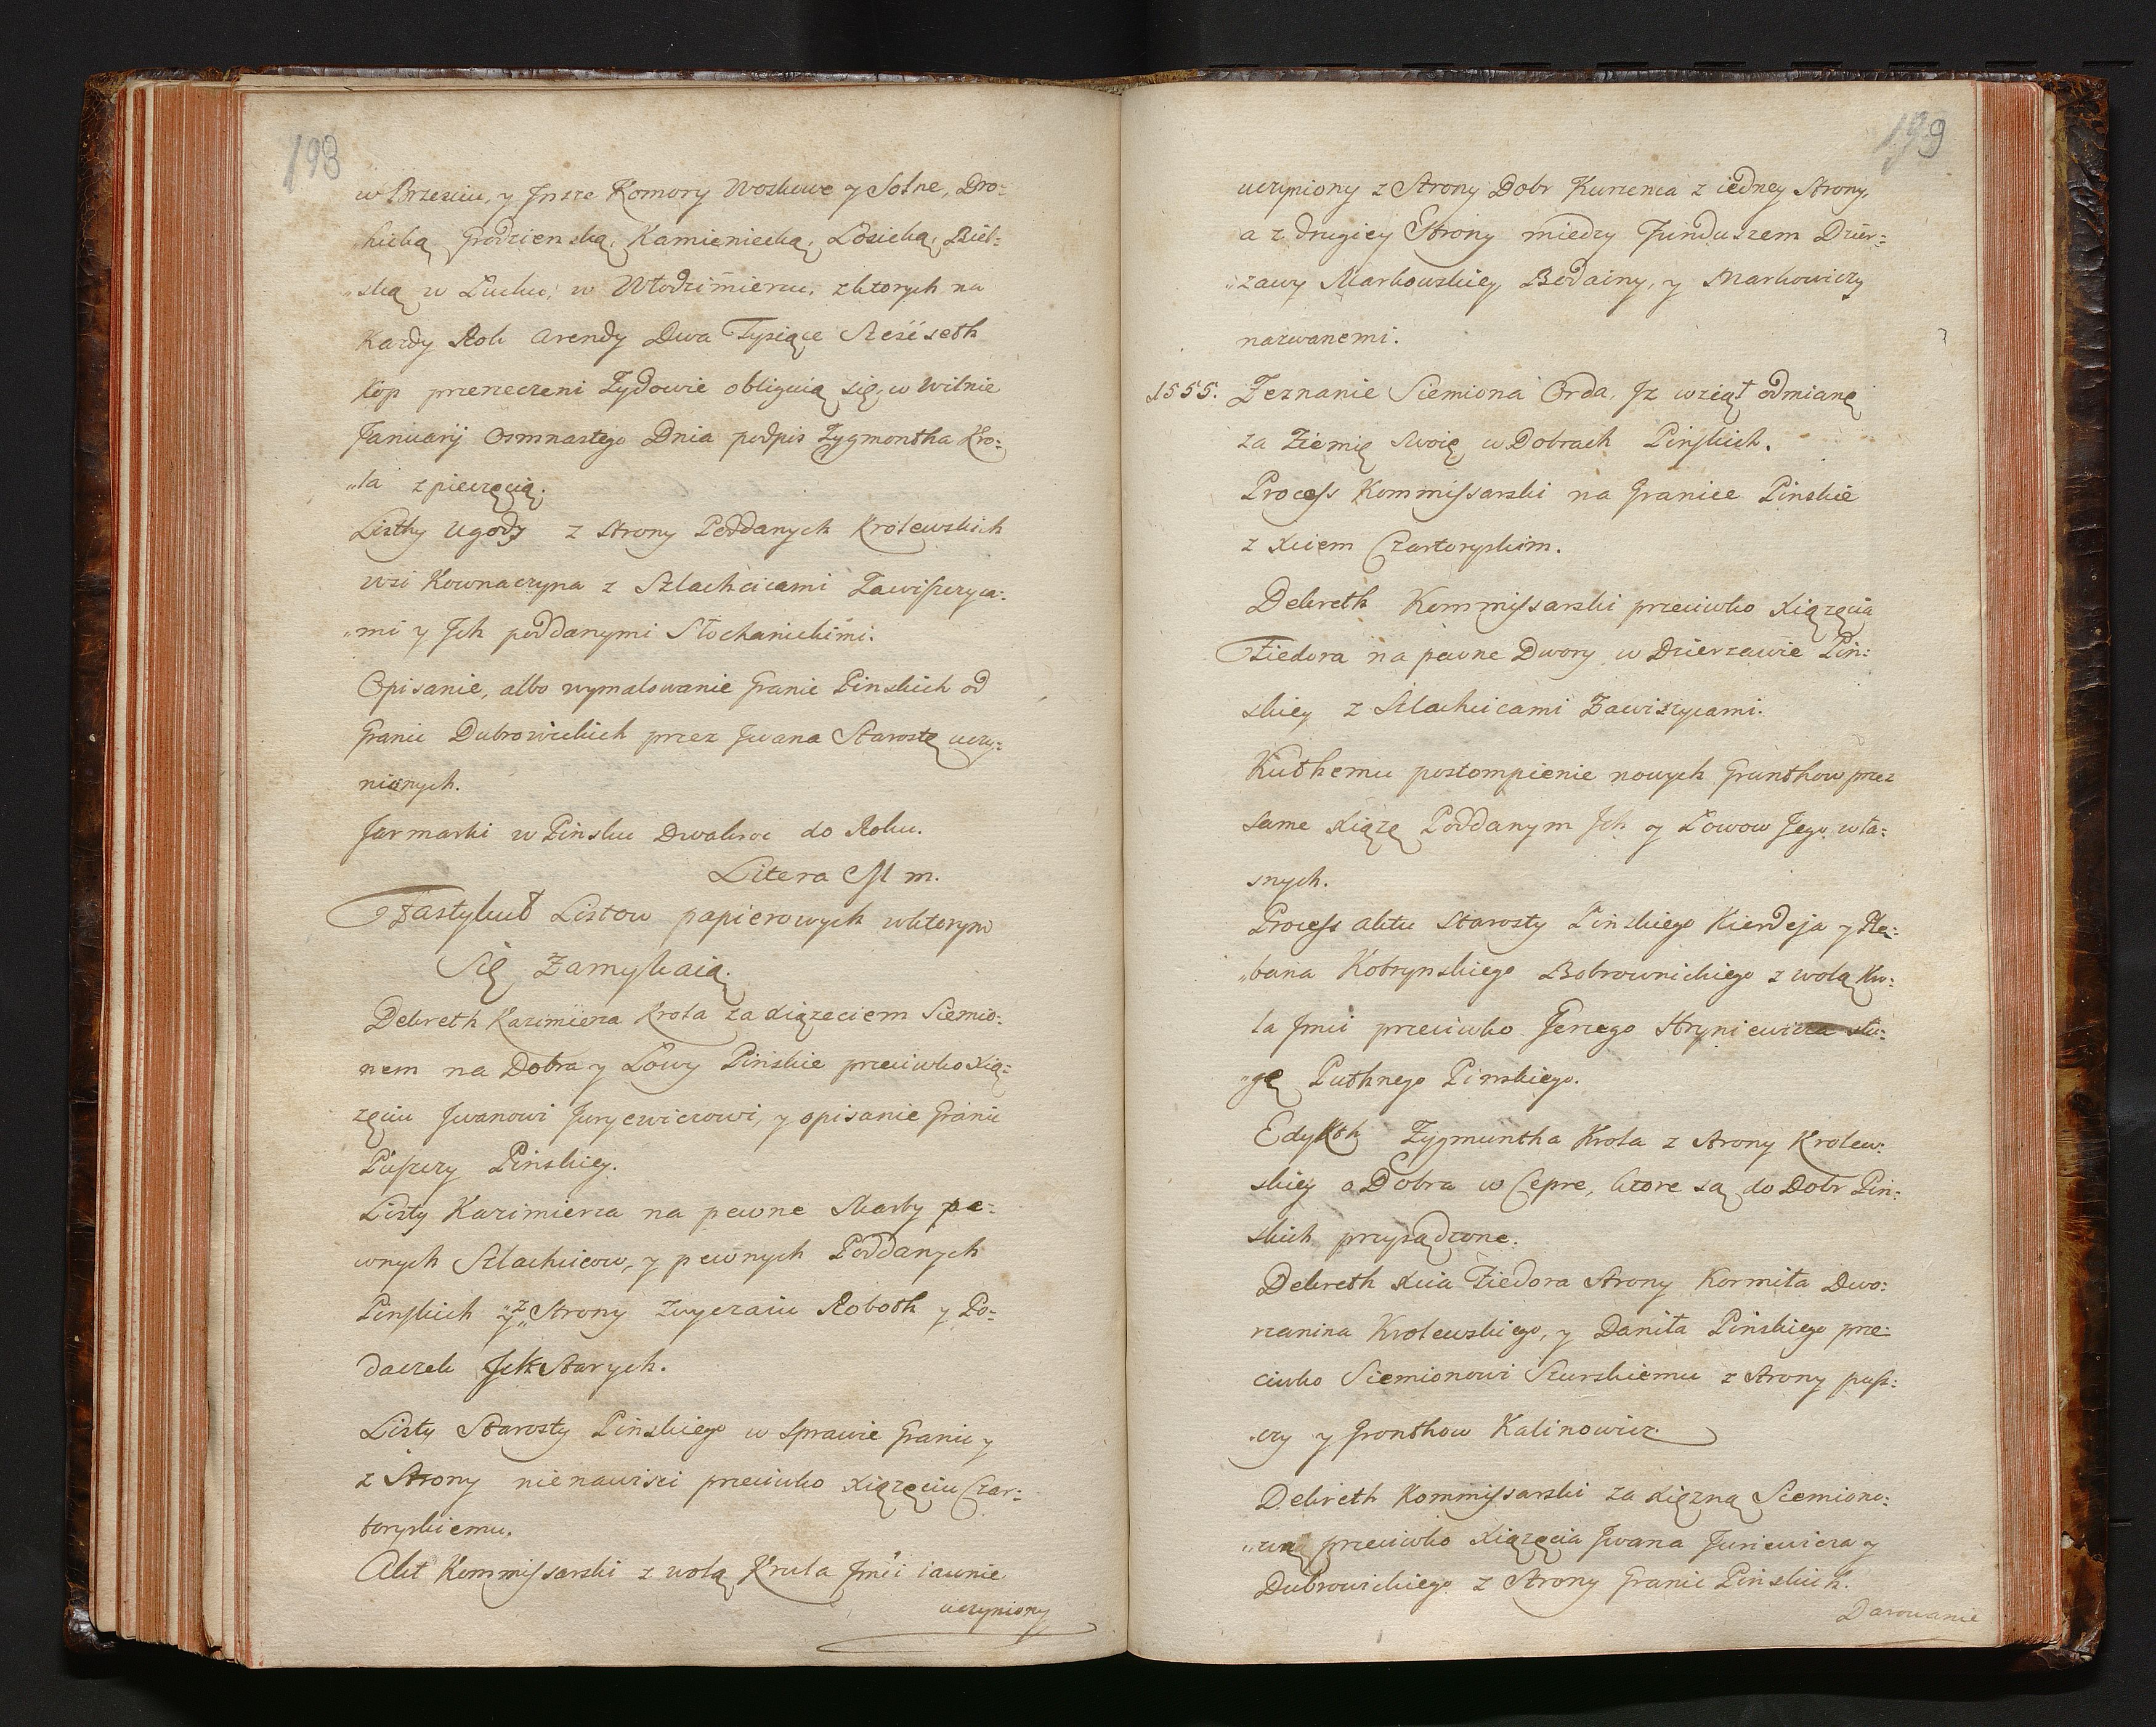 198
w Brzesciu, y Jnsze Komory Woskowe y Solne, Dro:
hicką Grodzienską, Kamieniecką, Łosicką, Biel:
„ską w Łucku, w Włodzimieru, zktorych na
Kazdy Rok Arendy Dwa Tysiące Sześćseth
kop przerzeczeni Zydowie obliguią się, w Wilnie
Januarij Osmnastego Dnia podpis Zygmontha Kro:
„la z pieczęcią.
Listhy Ugody z Strony Poddanych Krolewskich
wsi Kownaczyna z Szlachcicami Zawiszyca:
„mi y Jch poddanymi Stochanickimi.
Opisanie, albo wymalowanie Granic Pinskich od
Granic Dubrowickich przez Jwana Starostę uczy:
nionych.
Jarmarki w Pinsku Dwakroc do Roku.
Litera M m.
Fastykuł Listow papierowych wktorym
Się Zamykaią.
Dekreth Kazimierza Krola za Xiązeciem Siemio:
nem na Dobra y Łowy Pińskie przeciwko Xią:
zęciu Jwanowi Jurjewiczowi, y opisanie Granic
Puszczy Pińskiey.
Listy Kazimierza na pewne Skarby pe:
wnych Szlachcicow, y pewnych Poddanych
Pinskich y z Strony zwyczaiu Roboth y Po:
daczek Jch Starych.
Listy Starosty Pinskiego w Sprawie Granic y
z Strony nienawisci przeciwko Xiązęciu Czar:
toryskiemu.
Akt Kommissarski z wolą Krula Jmci iawnie
uczyniony
199
uczyniony z Strony Dobr Kurzenca z iedney Strony,
a z drugiey Strony miedzy Funduszem Dzier:
„zawy Markowskiey Bodainy, y Markowiczy
nazwanemi.
1555. Zeznanie Siemiona Orda, Jz wziął odmianę
za Ziemię Swoię w Dobrach Pinskich.
Process Kommissarski na Granice Pinskie
z Xciem Czartoryskim.
Dekreth Kommissarski przeciwko Xiązęcia
Fiedora na pewne Dwory w Dzierzawie Pin:
skiey z Szlachcicami Zawiszycami.
Kuthemu postompienie nowych Grunthow przez
same Xiązę Poddanym Jch y Łowow Jego wła:
snych.
Process aktu Starosty Pinskiego Kierdeja y Ple:
„bana Kobrynskiego Bobrownickiego z wolą Kro:
la Jmci przeciwko Jerzego Hryniewicza słu:
„gę Puthnego Pinskiego.
Edykth Zygmuntha Krola z Strony Krolew:
skiey o Dobra w Cepre, ktore są do Dobr Pin:
skich przysądzone.
Dekreth Xcia Fiedora Strony Kormiła Dwo:
rzanina Krolewskiego, y Daniła Pińskiego prze:
ciwko Siemionowi Szurskiemu z Strony pusz:
.czy y Gronthow Kalinowicz.
Dekreth Kommissarski za Xięzną Siemiono:
„wą przeciwko Xiązęcia Jwana Juriewicza y
Dubrowickiego z Strony Granic Pinskich.
Darowanie